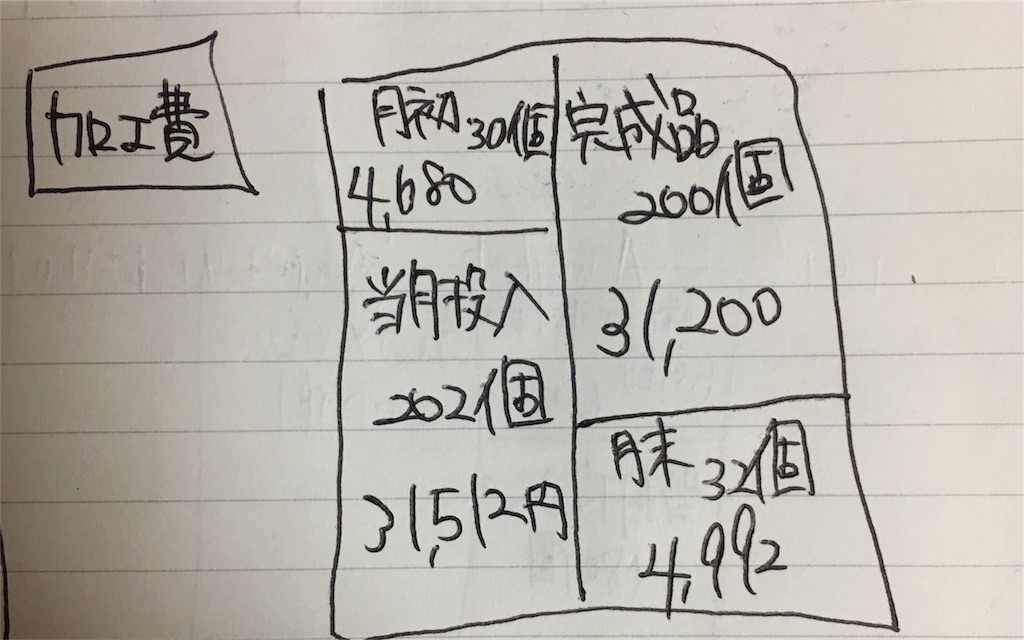 加工費
月初30個
4,680
当月投入
202個
31,512円
完成品
200個
31,200
月末 32個
4,992